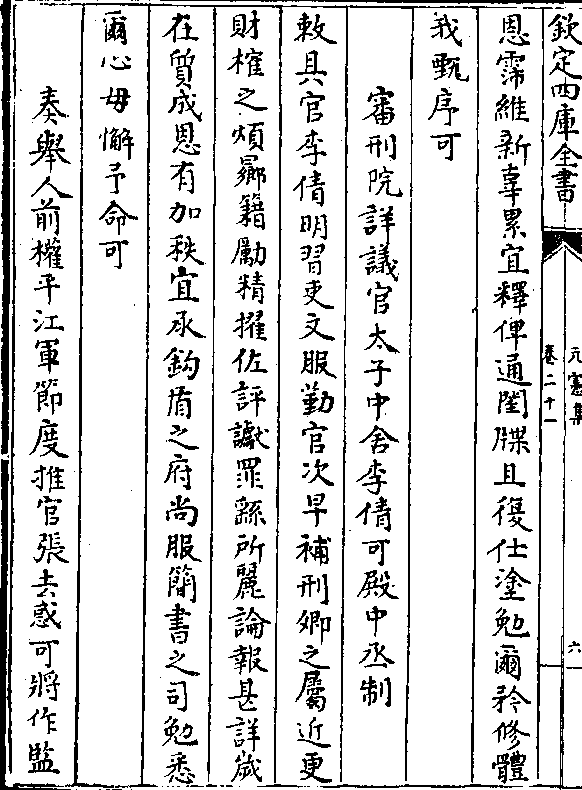 欽定四庫全書
元憲集
卷二十一
六
恩霈維新辜累宜釋俾通閨牒且復仕塗勉爾矜修體
我甄序可
審刑院詳議官太子中舍李倩可殿中丞制
敕具官李倩明習吏文服勤官次早補刑卿之屬近更
財榷之煩鄰籍勵精擢佐評讞罪繇所麗論報甚詳歲
在質成恩有加秩宜承鈎盾之府尚服簡書之司勉悉
爾心毋懈予命可
奏舉人前權平江軍節度推官張去惑可將作監